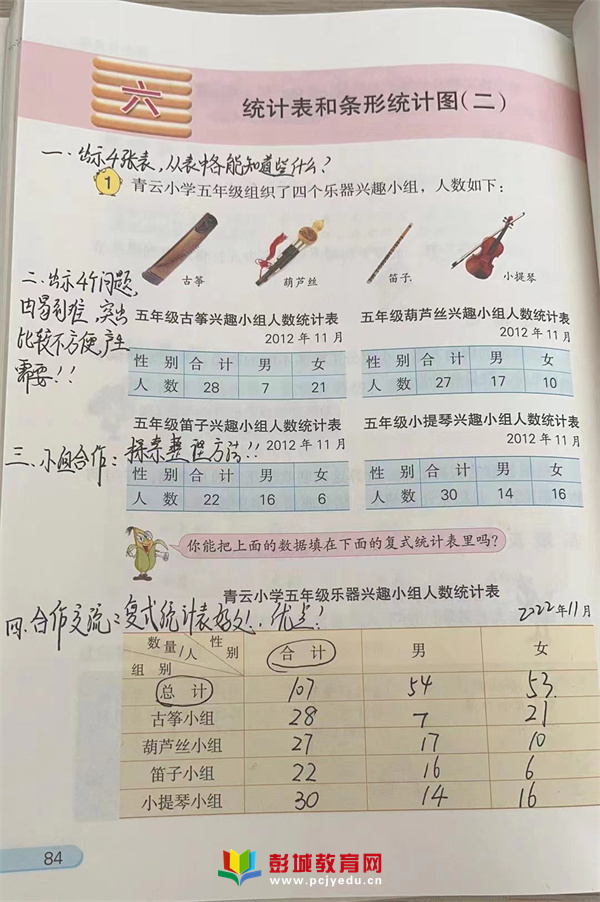 六
统计表和条形统计图(二)
一、出示4张表,从表中各能知道些什么?
1 青云小学五年级组织了四个乐器兴趣小组,人数如下:
古筝 葫芦丝 笛子 小提琴
二、出示4个问题
由易到难,突出
比较不方便,产生
需要!!
五年级古筝兴趣小组人数统计表
2012年11月
性别 合计 男 女
人数 28 7 21
五年级葫芦丝兴趣小组人数统计表
2012年11月
性别 合计 男 女
人数 27 17 10
三、小组合作:探索整理方法!!
五年级笛子兴趣小组人数统计表
2012年11月
性别 合计 男 女
人数 22 16 6
五年级小提琴兴趣小组人数统计表
2012年11月
性别 合计 男 女
人数 30 14 16
你能把上面的数据填在下面的复式统计表里吗?
青云小学五年级乐器兴趣小组人数统计表
四、合作交流:复式统计表好处!优点!
2022年11月
数量/人 性别 组别 合计 男 女
总计 107 54 53
古筝小组 28 7 21
葫芦丝小组 27 17 10
笛子小组 22 16 6
小提琴小组 30 14 16
84
彭城教育网
www.pcjyedu.cn